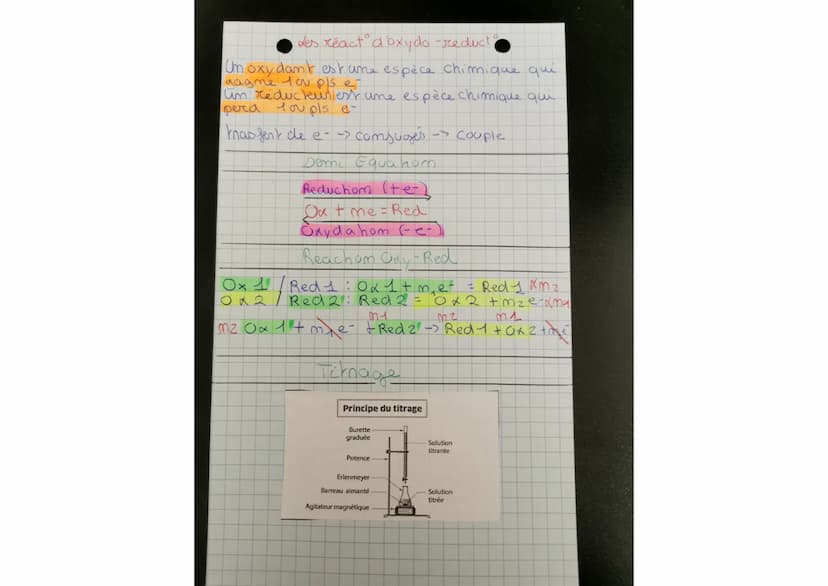 Les réact° d'oxydo-réduct°
Un oxydant est une espèce chimique qui
gagne 1 ou pls e-
Un réducteur est une espèce chimique qui
perd 1 ou pls e-
transfert de e- -> conjugés -> couple
Demi Équation
Reduction (+e-)
Ox + ne = Red
Oxydation (-e-)
Reaction Oxy-Red
Ox 1 / Red 1 : Ox 1 + n1e- = Red 1 xn2
Ox 2 / Red 2 : Red 2 = Ox 2 + n2e- xn1
n2 Ox 1 + n1e- + n1 Red 2 -> n2 Red 1 + n1 Ox 2 + n2e-
Titrage
Principe du titrage
Burette graduée
Solution titrante
Potence
Erlenmeyer
Barreau aimanté
Solution titrée
Agitateur magnétique